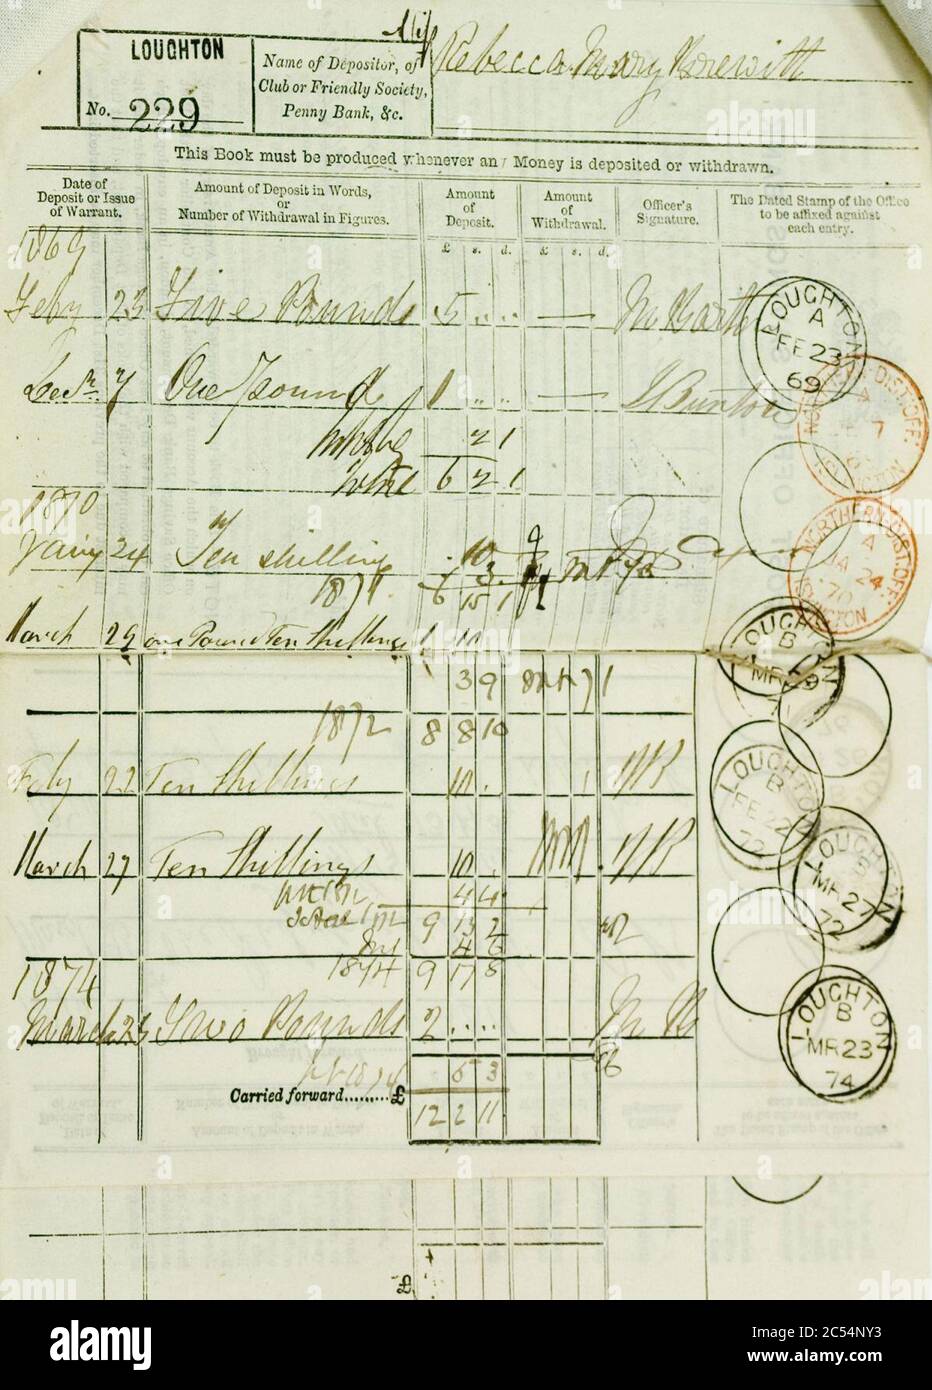 LOUGHTON
No. 229
Name of Depositor, of
Club or Friendly Society,
Penny Bank, &c.
Rebecca Mary
This Book must be produced whenever any Money is deposited or withdrawn.
Date of
Deposit or Issue
of Warrant.
Amount of Deposit in Words,
or
Number of Withdrawal in Figures.
Amount
of
Deposit.
Amount
of
Withdrawal.
Officer's
Signature.
The Dated Stamp of the Office
to be affixed against
each entry.
£ s. d. £ s. d.
1869
Feby 23 Five Pounds 5 .. .. —
LOUGHTON
A
FE 23
69
Decr 7 One Pound 1 .. .. —
7
2 1
6 2 1
1870
24 Ten shillings 10
NORTHERN DIST. OFF.
A
JA 24
70
3
1871 6 15 1
March 29 One Pound Ten Shillings 1 10
LOUGHTON
B
MR 29
3 9
1872 8 8 10
Feby 22 Ten Shillings 10
LOUGHTON
B
FE 22
72
March 27 Ten Shillings 10
LOUGHTON
B
MR 27
72
4 4
9 13 2
4 6
1874 9 17 8
1874
March 23 Two Pounds 2 .. ..
LOUGHTON
B
MR 23
74
5 3
Carried forward.........£ 12 2 11
£
alamy
Image ID: 2C54NY3
www.alamy.com